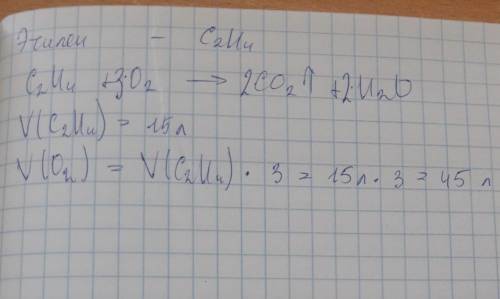 Этилен – C₂H₄
C₂H₄ + 3·O₂ → 2CO₂↑ + 2·H₂O
V(C₂H₄) = 15 л
V(O₂) = V(C₂H₄) · 3 = 15 л · 3 = 45 л